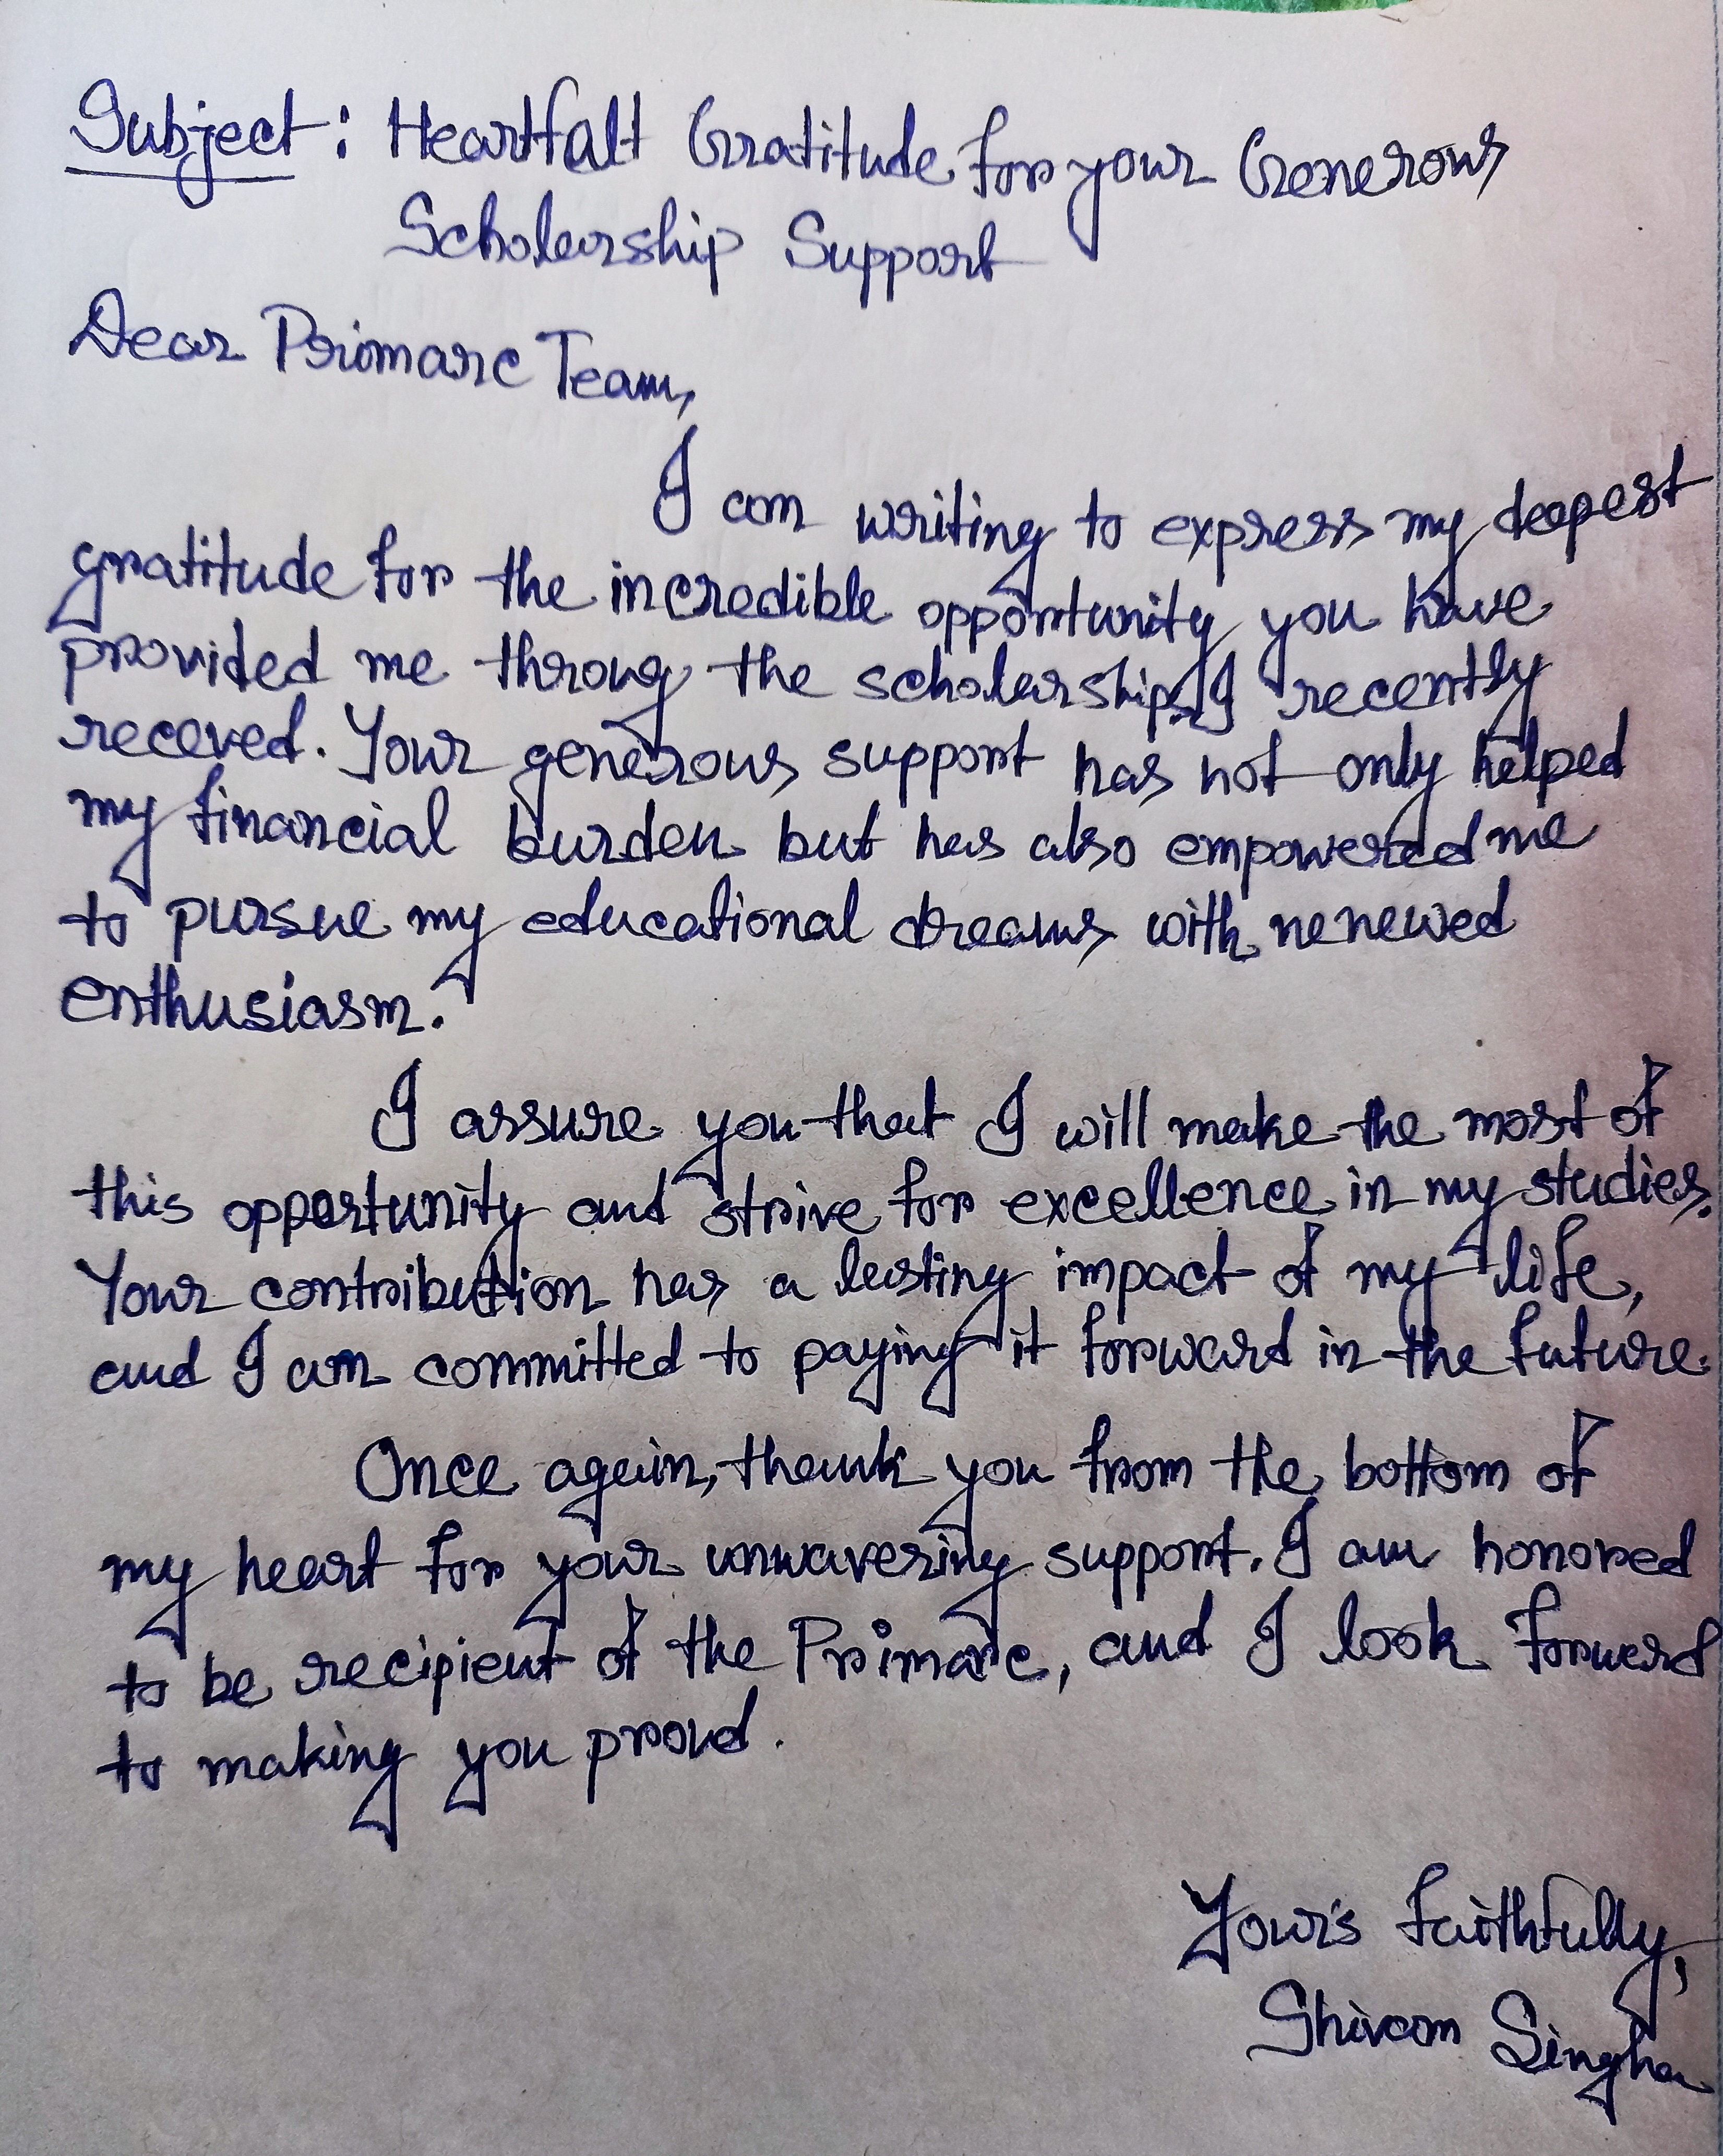 Subject: Heartfalt Gratitude for your Generous
Scholarship Support
Dear Primarc Team,
I am writing to express my deepest
gratitude for the incredible opportunity you have
provided me throug the scholarship I recently
receved. Your generous support has not only helped
my financial burden but has also empowered me
to pursue my educational dreams with renewed
enthusiasm.
I assure you that I will make the most of
this opportunity and strive for excellence in my studies.
Your contribution has a lasting impact of my life,
and I am committed to paying it forward in the future.
Once again, thank you from the bottom of
my heart for your unwavering support. I am honored
to be recipient of the Primarc, and I look forward
to making you proud.
Your's faithfully,
Shivam Singha